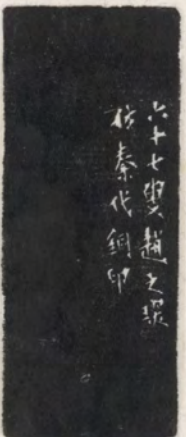 六十七叟趙之琛
仿秦代銅印